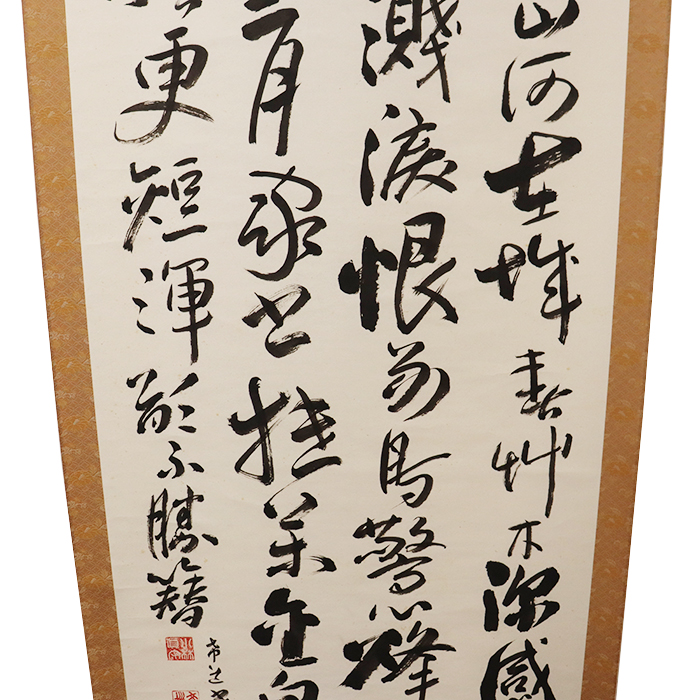 山河在城春草木深感
濺淚恨別鳥驚心烽
三月家書抵万金白
更短渾欲不勝簪